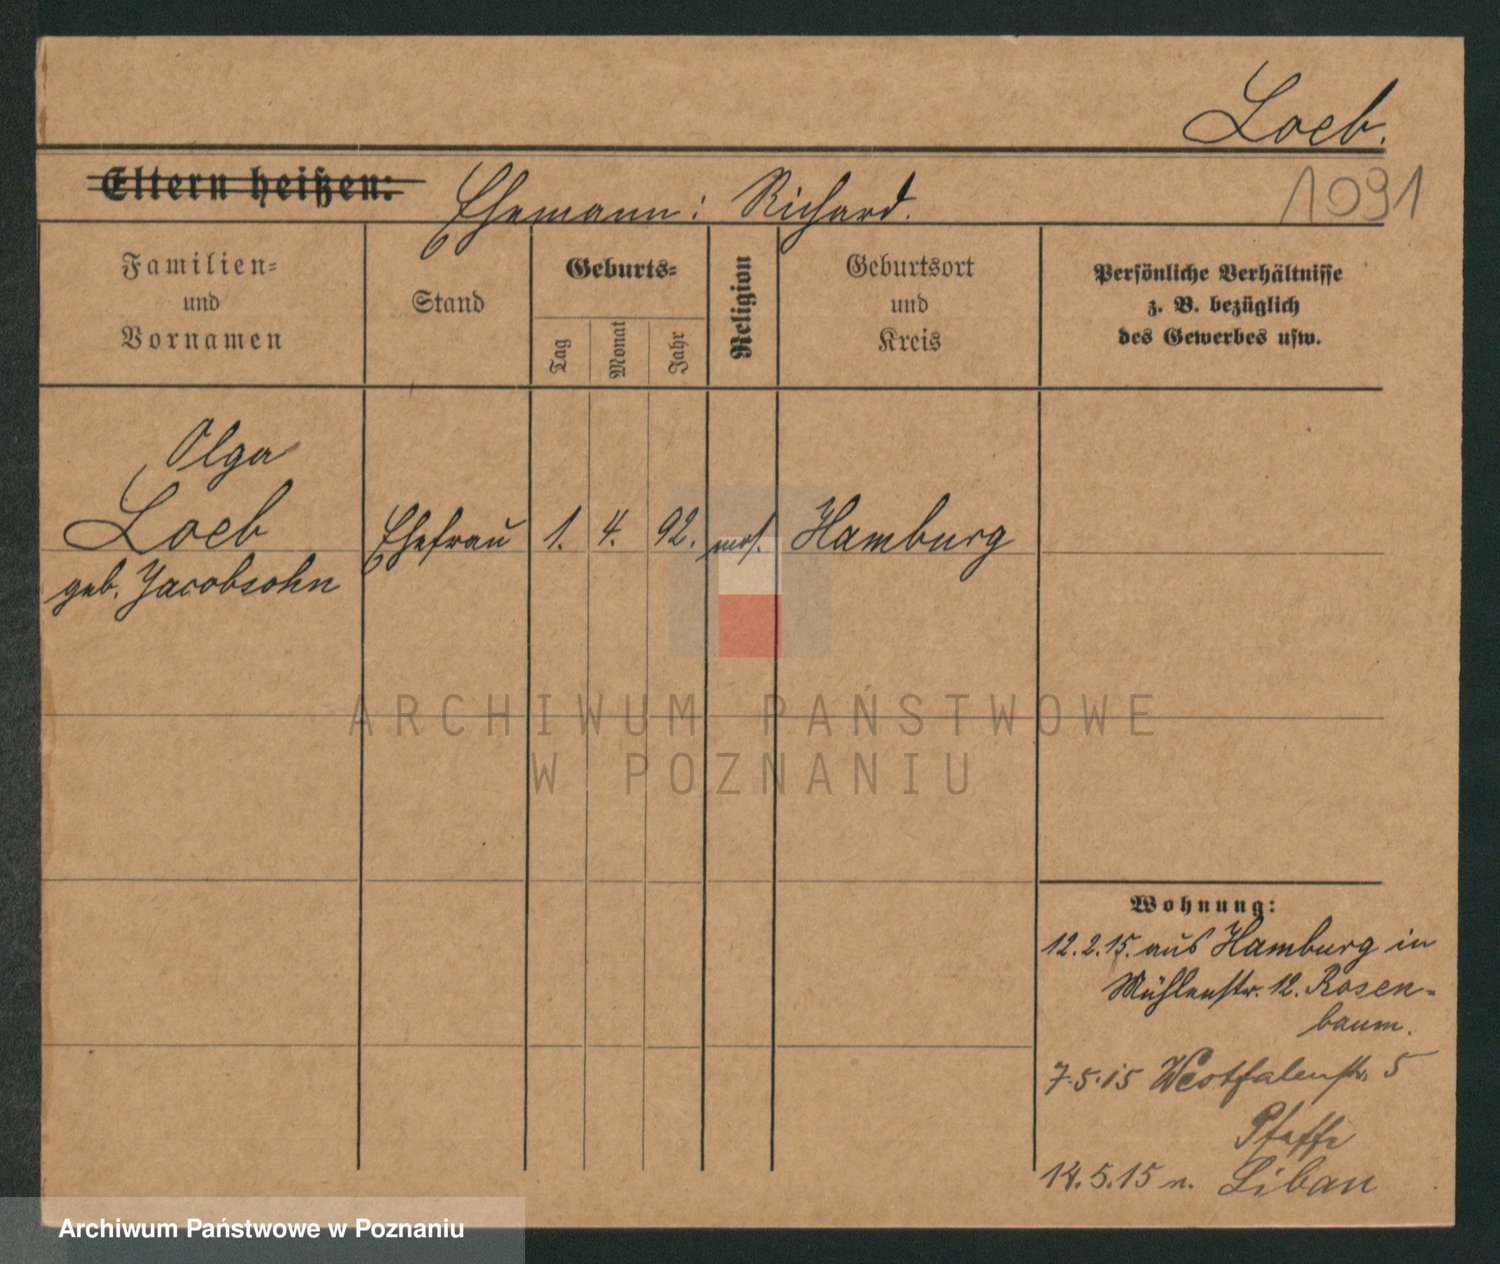 Loeb.
Eltern heißen: Ehemann: Richard.
1091
Familien=
und
Vornamen
Stand
Geburts=
Tag
Monat
Jahr
Religion
Geburtsort
und
Kreis
Persönliche Verhältnisse
z. B. bezüglich
des Gewerbes usw.
Olga
Loeb
geb. Jacobsohn
Ehefrau
1. 4. 92.
mos.
Hamburg
ARCHIWUM PAŃSTWOWE
W POZNANIU
Wohnung:
12.2.15. aus Hamburg in
Mühlenstr. 12. Rosen-
baum.
7.5.15 Westfalenstr. 5
Pfaffe
14.5.15 n. Liban
Archiwum Państwowe w Poznaniu